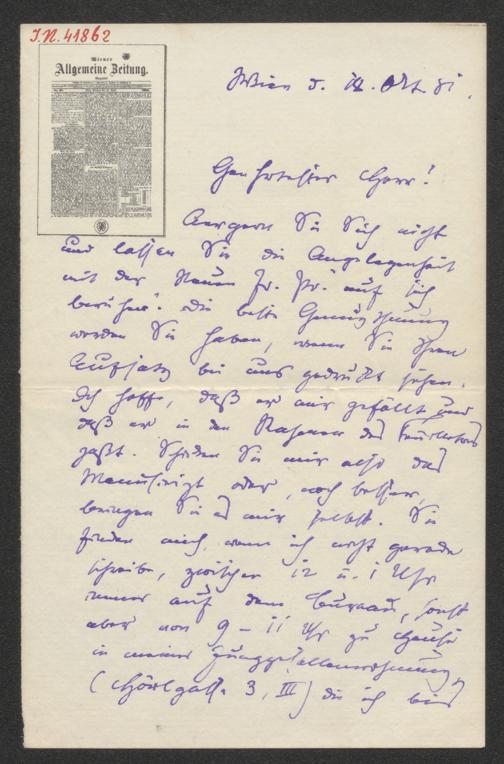 I.N. 41862
Wiener
Allgemeine Zeitung.
Wien d. 12. Okt. 81.
Geehrtester Herr!
Aergern Sie Sich nicht
und lassen Sie die Angelegenheit
mit der „Neuen Fr. Pr." auf sich
beruhen. Die beste Genugthuung
werden Sie haben, wenn Sie Ihren
Aufsatz bei uns gedruckt sehen.
Ich hoffe, daß er mir gefällt und
daß er in den Rahmen des Feuilletons
paßt. Schicken Sie mir also das
Manuscript oder, noch besser,
bringen Sie es mir selbst. Sie
finden mich, wenn ich nicht gerade
schreibe, zwischen 12 u. 1 Uhr
immer auf dem Bureau, sonst
aber von 9 - 11 Uhr zu Hause
in meiner Junggesellenwohnung
(Hörlgasse 3, III) die ich